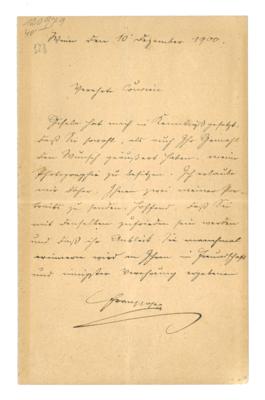 120979
Wien den 10 Dezember 1900.
Verehrte Cousine
hat mich in Kenntniß gesetzt,
daß Sie sowohl, als auch Ihr Gemahl
den Wunsch geäußert haben, meine
Photographie zu besitzen. Ich erlaube
mir daher, Ihnen zwei meiner Por-
traits zu senden, hoffend, daß Sie
mit denselben zufrieden sein werden
und daß ihr Anblick Sie manchmal
erinnern wird an Ihren in Freundschaft
und innigster Verehrung ergebenen